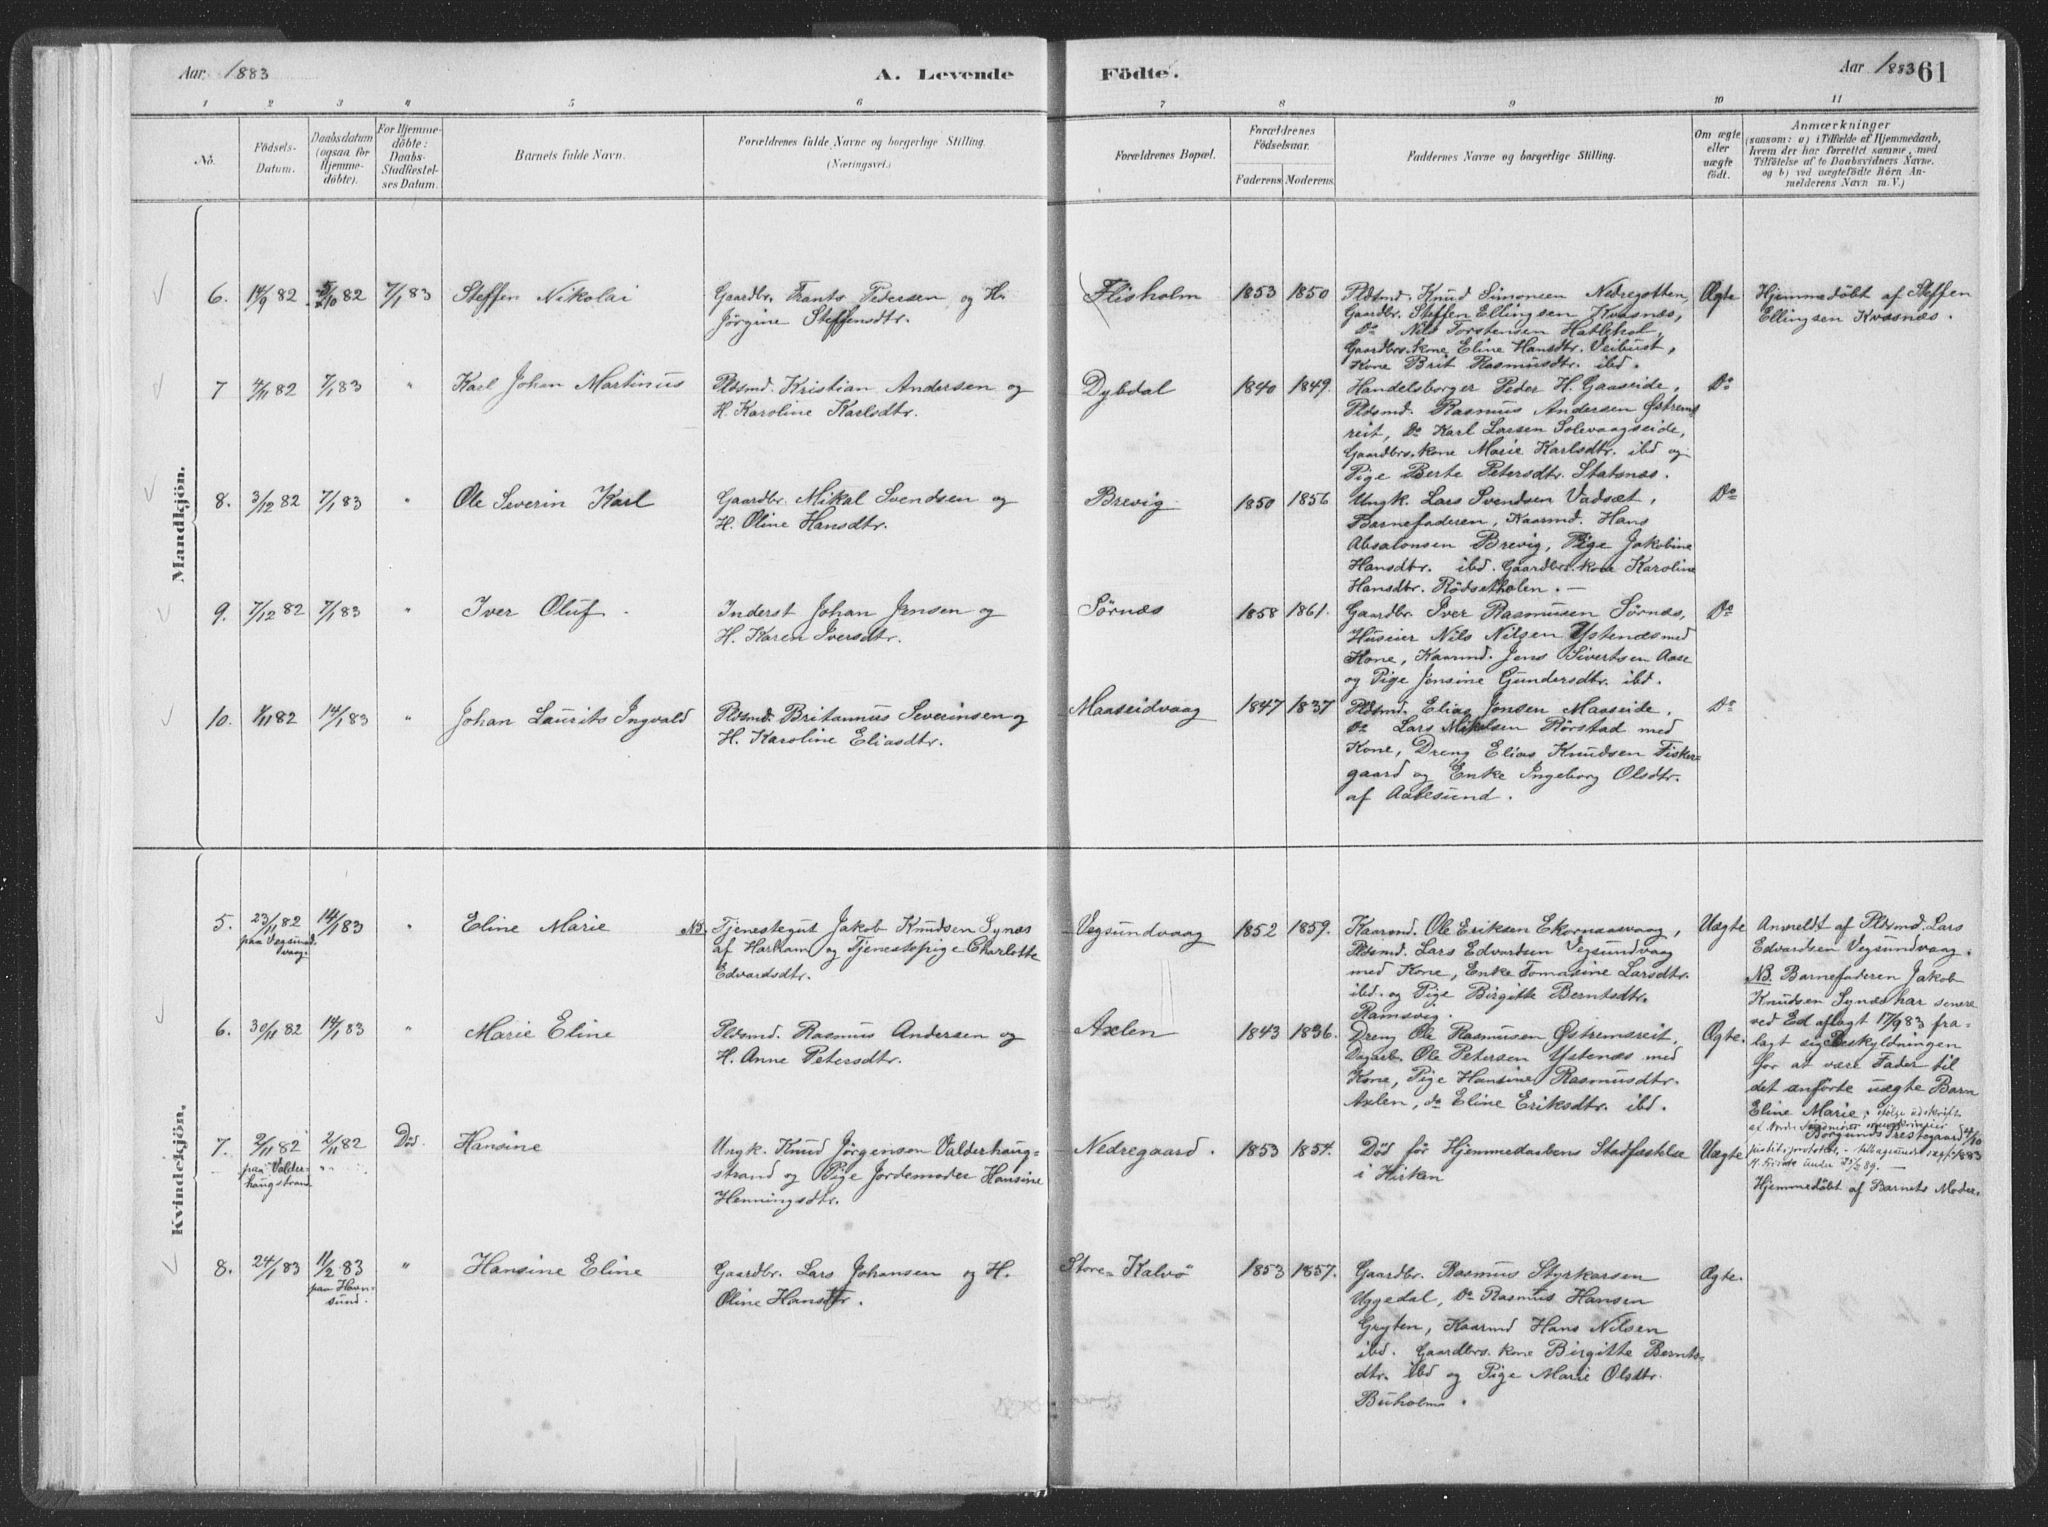 Aar 1883
A. Levende Födte.
Aar 1883 61
1 2 3 4 5 6 7 8 9 10 11
No.
Födsels-
Datum.
Daabsdatum
(ogsaa for
Hjemme-
döbte).
For Hjemme-
döbte:
Daabs-
Stadfæstel-
ses Datum.
Barnets fulde Navn.
Forældrenes fulde Navne og borgerlige Stilling.
(Næringsvei.)
Forældrenes Bopæl.
Forældrenes
Födselsaar.
Faderens Moderens.
Faddernes Navne og borgerlige Stilling.
Om ægte
eller
uægte
födt.
Anmærkninger
(saasom: a) i Tilfælde af Hjemmedaab,
hvem der har forrettet samme, med
Tilföielse af to Daabsvidners Navne.
og b) ved uægtefödte Börn An-
melderens Navn m. V.)
Mandkjön.
6. 14/9 82 5/10 82 7/1 83
Steffen Nikolai
Gaardbr. Frants Pedersen og H.
Jörgine Steffensdtr.
Flisholm
1853 1850
Pldsmd. Knud Simonsen Nedregotten,
Gaardbr. Steffen Ellingsen Kvasnæs,
Do Nils Torstensen Hatlehol,
Gaardbrs.kone Eline Hansdtr. Veibust,
Kone Brit Rasmusdtr. ibd.
Ægte
Hjemmedöbt af Steffen
Ellingsen Kvasnæs.
7 4/11 82 7/1 83 "
Karl Johan Martinus
Pldsmd. Kristian Andersen og
H. Karoline Karlsdtr.
Dybdal
1840 1849.
Handelsborger Peder H. Gaaseide,
Pldsmd. Rasmus Andersen Østrems-
reit, Do Karl Larsen Solevaagseide,
Gaardbrs.kone Marie Karlsdtr. ibd og
Pige Berte Petersdtr. Statsnæs.
Do
8. 3/12 82 7/1 83 "
Ole Severin Karl
Gaardbr. Mikal Svendsen og
H. Oline Hansdtr.
Brevig
1850 1856
Ungk. Lars Svendsen Vadsæt,
Barnefaderen, Kaarmd. Hans
Absalonsen Brevig, Pige Jakobine
Hansdtr. ibd. Gaardbrs.kone Karoline
Hansdtr. Rödsetholen. —
Do
9. 7/12 82 7/1 83 "
Iver Oluf
Inderst Johan Jensen og
H. Karen Iversdtr.
Sørnæs
1858 1861.
Gaardbr. Iver Rasmusen Sørnæs,
Huseier Nils Nilsen Ystenæs med
Kone, Kaarmd. Jens Sivertsen Aase
og Pige Jensine Gundersdtr. ibd.
Do
10. 1/11 82 14/1 83 "
Johan Laurits Ingvald
Pldsmd. Britannus Severinsen og
H. Karoline Eliasdtr.
Maaseidvaag
1847 1837
Pldsmd. Elias Jonsen Maaseide,
Do Lars Mikelsen Rörstad med
Kone, Dreng Elias Knudsen Fisker-
gaard og Enke Ingeborg Olsdtr.
af Aalesund.
Do
Kvindekjön.
5. 23/11 82 14/1 83 "
paa Vegsund-
vaag.
Eline Marie
NB. Tjenestegut Jakob Knudsen Synæs
af Harham og Tjenestepige Charlotte
Edvardsdtr.
Vegsundvaag
1852 1859.
Kaarmd. Ole Eriksen Ekornaasvaag,
Pldsmd. Lars Edvardsen Vegsundvaag
med Kone, Enke Tomasine Larsdtr.
ibd. og Pige Birgitte Berntsdtr.
Ramsvig.
Uægte
Anmeldt af Pldsmd. Lars
Edvardsen Vegsundvaag.
NB. Barnefaderen Jakob
Knudsen Synæs har senere
ved Ed aflagt 17/9 83 fra-
lagt sig Beskyldningen
for at være Fader til
det anförte uægte Barn
Eline Marie,
Borgunds Prestegaard
6. 30/11 82 14/1 83 "
Marie Eline
Pldsmd. Rasmus Andersen og
H. Anne Petersdtr.
Axlen
1843 1836.
Dreng Ole Rasmusen Østremsreit,
Dagarb. Ole Petersen Ystenæs med
Kone, Pige Hansine Rasmusdtr.
Axlen, do Eline Eriksdtr. ibd.
Ægte.
7. 2/11 82 2/11 82 Död.
paa Valder-
haugstrand
Hansine
Ungk. Knud Jørgensen Valderhaug-
strand og Pige Jordemoder Hansine
Henningsdtr.
Nedregaard.
1853 1854.
Död för Hjemmedaabens Stadfæstelse
i Kirken
Uægte
Hjemmedöbt af Barnets Moder.
8. 24/1 83 11/2 83 "
paa Havn-
sund.
Hansine Eline
Gaardbr. Lars Johansen og H.
Oline Hansdtr.
Store-Kalvö
1853 1857.
Gaardbr. Rasmus Styrkarsen
Uggedal, Do Rasmus Hansen
Gryten, Kaarmd Hans Nilsen
ibd. Gaardbrs.kone Birgitte Bernts-
dtr. ibd og Pige Marie Olsdtr.
Buholm.
Ægte.